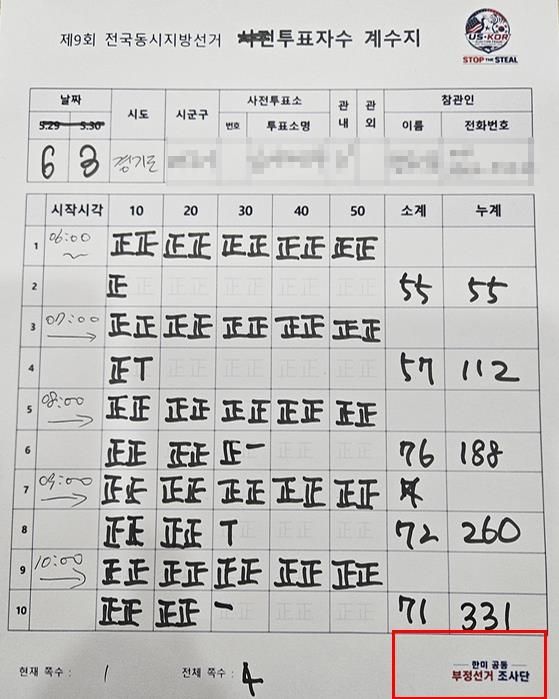 제9회 전국동시지방선거 사전투표자수 계수지
US-KOR
STOP THE STEAL
날짜 시도 시군구 사전투표소 관내 관외 참관인
5.29 5.30 번호 투표소명 이름 전화번호
6 3 경기도
시작시각 10 20 30 40 50 소계 누계
1 06:00 正正 正正 正正 正正 正正
2 正 55 55
3 07:00 正正 正正 正正 正正 正正
4 正T 57 112
5 08:00 正正 正正 正正 正正 正正
6 正正 正正 正一 76 188
7 09:00 正正 正正 正正 正正 正正
8 正正 正正 T 72 260
9 10:00 正正 正正 正正 正正 正正
10 正正 正正 一 71 331
현재 쪽수 : 1 전체 쪽수 : 4
한미 공동
부정선거 조사단